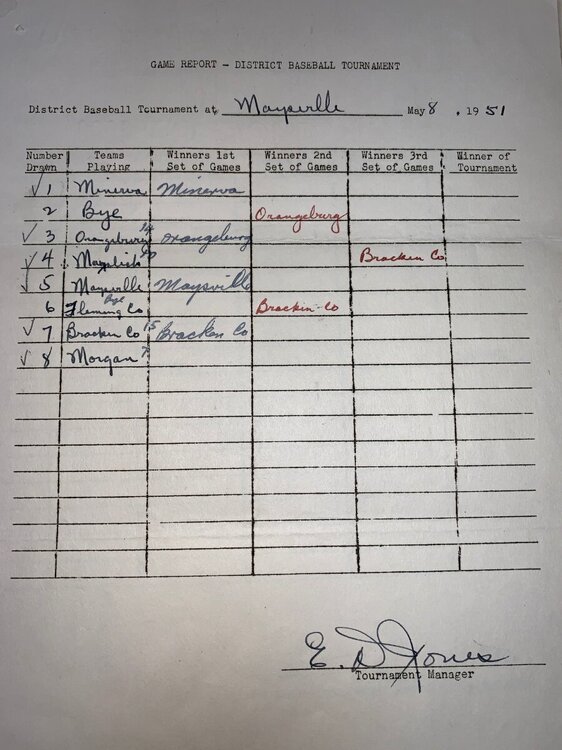 GAME REPORT - DISTRICT BASEBALL TOURNAMENT
District Baseball Tournament at Maysville May 8, 1951
Number Drawn Teams Playing Winners 1st Set of Games Winners 2nd Set of Games Winners 3rd Set of Games Winner of Tournament
√ 1 Minerva Minerva
2 Bye Orangeburg
√ 3 Orangeburg Orangeburg
√ 4 Mayslick Bracken Co
√ 5 Maysville Maysville
6 Fleming Co Bye Bracken Co
√ 7 Bracken Co 15 Bracken Co
√ 8 Morgan 7
E. D. Jones
Tournament Manager